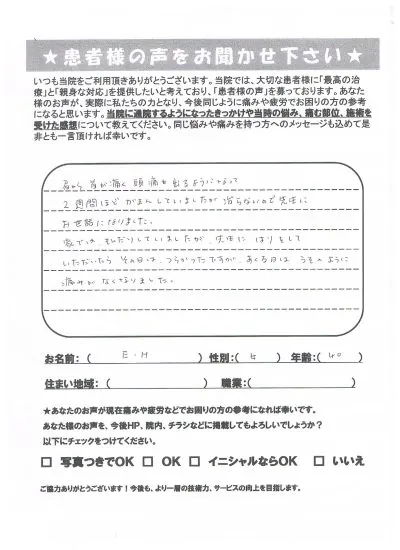 ★患者様の声をお聞かせ下さい★
いつも当院をご利用頂きありがとうございます。当院では、大切な患者様に「最高の治
療」と「親身な対応」を提供したいと考えており、「患者様の声」を募っております。あなた
様のお声が、実際に私たちの力となり、今後同じように痛みや疲労でお困りの方の参考
になると思います。当院に通院するようになったきっかけや当時の悩み、痛む部位、施術を
受けた感想について教えてください。同じ悩みや痛みを持つ方へのメッセージも込めて是
非とも一言頂ければ幸いです。
首が痛く 頭痛も出るようになって
2週間ほど がまんしていましたが 治らないので 先生に
お世話になりました。
家では、もんだりしていましたが、先生に はりをして
いただいたら その日は、つらかったですが、あくる日は うそのように
痛みがなくなりました。
お名前：（ E．H ）性別：（ 女 ）年齢：（ 40 ）
住まい地域：（ ）職業：（ ）
★あなたのお声が現在痛みや疲労などでお困りの方の参考になれば幸いです。
あなた様のお声を、今後HP、院内、チラシなどに掲載してもよろしいでしょうか？
以下にチェックをつけてください。
□ 写真つきでOK □ OK □ イニシャルならOK □ いいえ
ご協力ありがとうございます！今後も、より一層の技術力、サービスの向上を目指します。